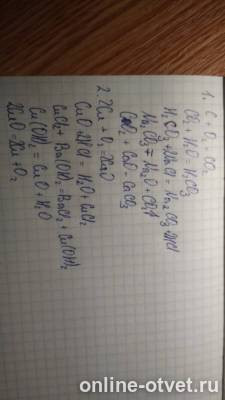 1. C + O₂ = CO₂
CO₂ + H₂O = H₂CO₃
H₂CO₃ + NaCl = Na₂CO₃ + 2HCl
Na₂CO₃ = Na₂O + CO₂↑
CO₂ + CaO = CaCO₃
2. 2Cu + O₂ = 2CuO
CuO + 2HCl = H₂O + CuCl₂
CuCl₂ + Ba(OH)₂ = BaCl₂ + Cu(OH)₂
Cu(OH)₂ = CuO + H₂O
2CuO = 2Cu + O₂
online-otvet.ru